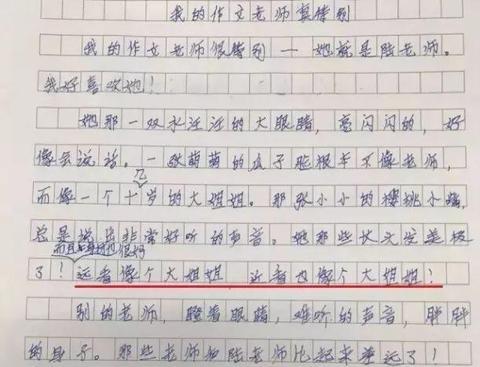 我的作文老师真特别
我的作文老师很特别——她就是陆老师。
我好喜欢她！
她那一双水汪汪的大眼睛，亮闪闪的，好
像会说话。一张萌萌的瓜子脸根本不像老师，
而像一个十几岁的大姐姐。那张小小的樱桃小嘴，
总是说出非常好听的声音。她那些长头发美极
而且身材也很好
了！远看像个大姐姐 近看也像个大姐姐！
别的老师，瞪着眼睛，难听的声音，胖胖
的身子。那些老师和陆老师比起来差远了！